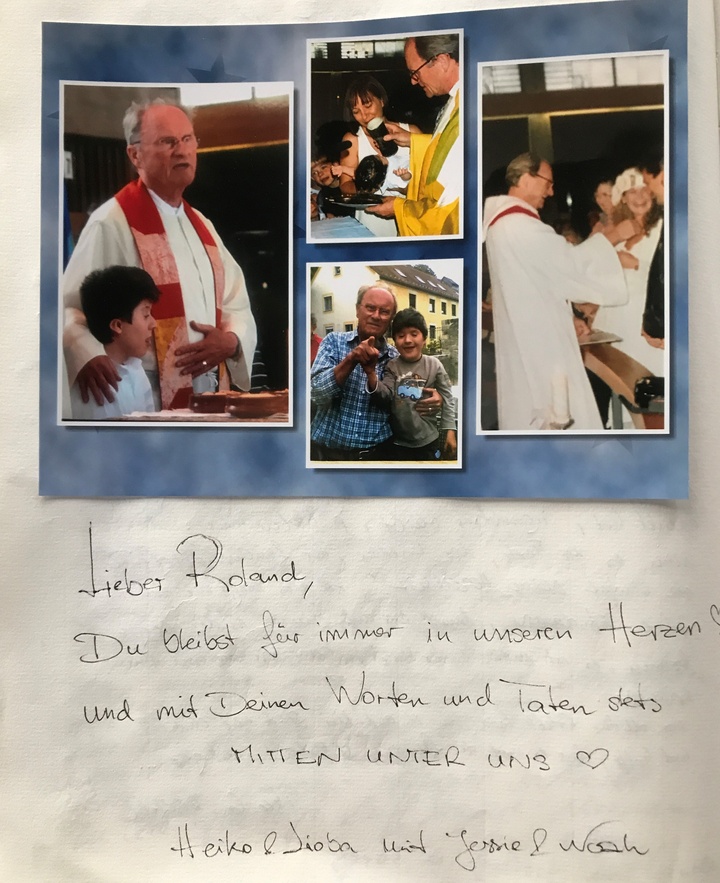 Lieber Roland,
Du bleibst für immer in unseren Herzen ♡
und mit Deinen Worten und Taten stets
MITTEN UNTER UNS ♡
Heiko & Lioba mit Jessie & Noah